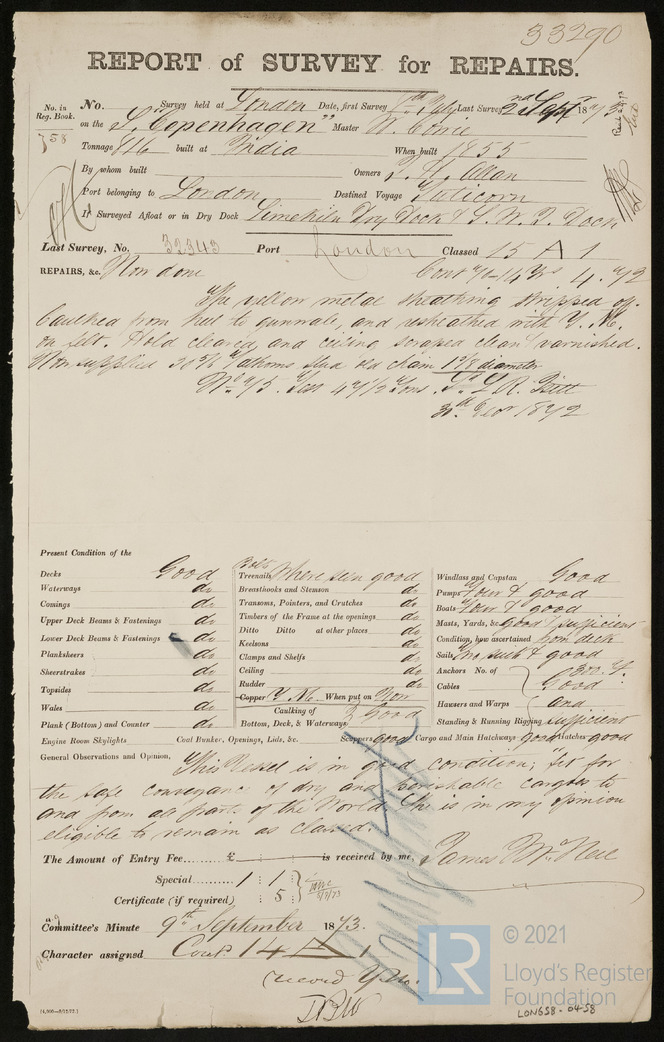 33290
REPORT of SURVEY for REPAIRS.
No. in Reg. Book. No. Survey held at London Date, first Survey July Last Survey 2nd Sept 1873
758 on the S. "Copenhagen" Master W. Corrie
Tonnage 846 built at India When built 1855
By whom built Owners Allan
Port belonging to London Destined Voyage
If Surveyed Afloat or in Dry Dock Limekiln Dry Dock & S. W. I. Dock
Last Survey, No. 32343 Port London Classed 15 A 1
REPAIRS, &c. Now done Cont 71-14 Yrs 4.72
The yellow metal sheathing stripped off
Caulked from keel to gunwale, and resheathed with Y. M.
on felt. Hold cleared and ceiling scraped clean & varnished.
Now supplied fathoms stud old chain 1 5/8 diameter
Test 47 1/2 Tons R. Pitt
Decr 1872
Present Condition of the
Decks Good
Waterways do
Comings do
Upper Deck Beams & Fastenings do
Lower Deck Beams & Fastenings do
Planksheers do
Sheerstrakes do
Topsides do
Wales do
Plank (Bottom) and Counter do
Bolts
Treenails Where seen good
Breasthooks and Stemson do
Transoms, Pointers, and Crutches do
Timbers of the Frame at the openings do
Ditto Ditto at other places do
Keelsons do
Clamps and Shelfs do
Ceiling do
Rudder do
Copper Y. M. When put on Now
Caulking of Bottom, Deck, & Waterways } Good
Windlass and Capstan Good
Pumps Four & good
Boats Four & good
Masts, Yards, &c. good & sufficient
Condition, how ascertained from deck
Sails suit & good
Anchors No. of
Cables Good
Hawsers and Warps and
Standing & Running Rigging sufficient
Engine Room Skylights Coal Bunker, Openings, Lids, &c. Scuppers good Cargo and Main Hatchways good Hatches good
General Observations and Opinion, This Vessel is in good condition, fit for
the safe conveyance of dry and perishable cargoes to
and from all parts of the World. She is in my opinion
eligible to remain as classed.
The Amount of Entry Fee......... £ : : is received by me, James McNeil
Special......... 1 : 1
Certificate (if required) : 5
Committee's Minute 9th September 1873.
Character assigned Contd 14 A 1
Record Y. M.
© 2021
LR
Lloyd's Register
Foundation
LON658-0458